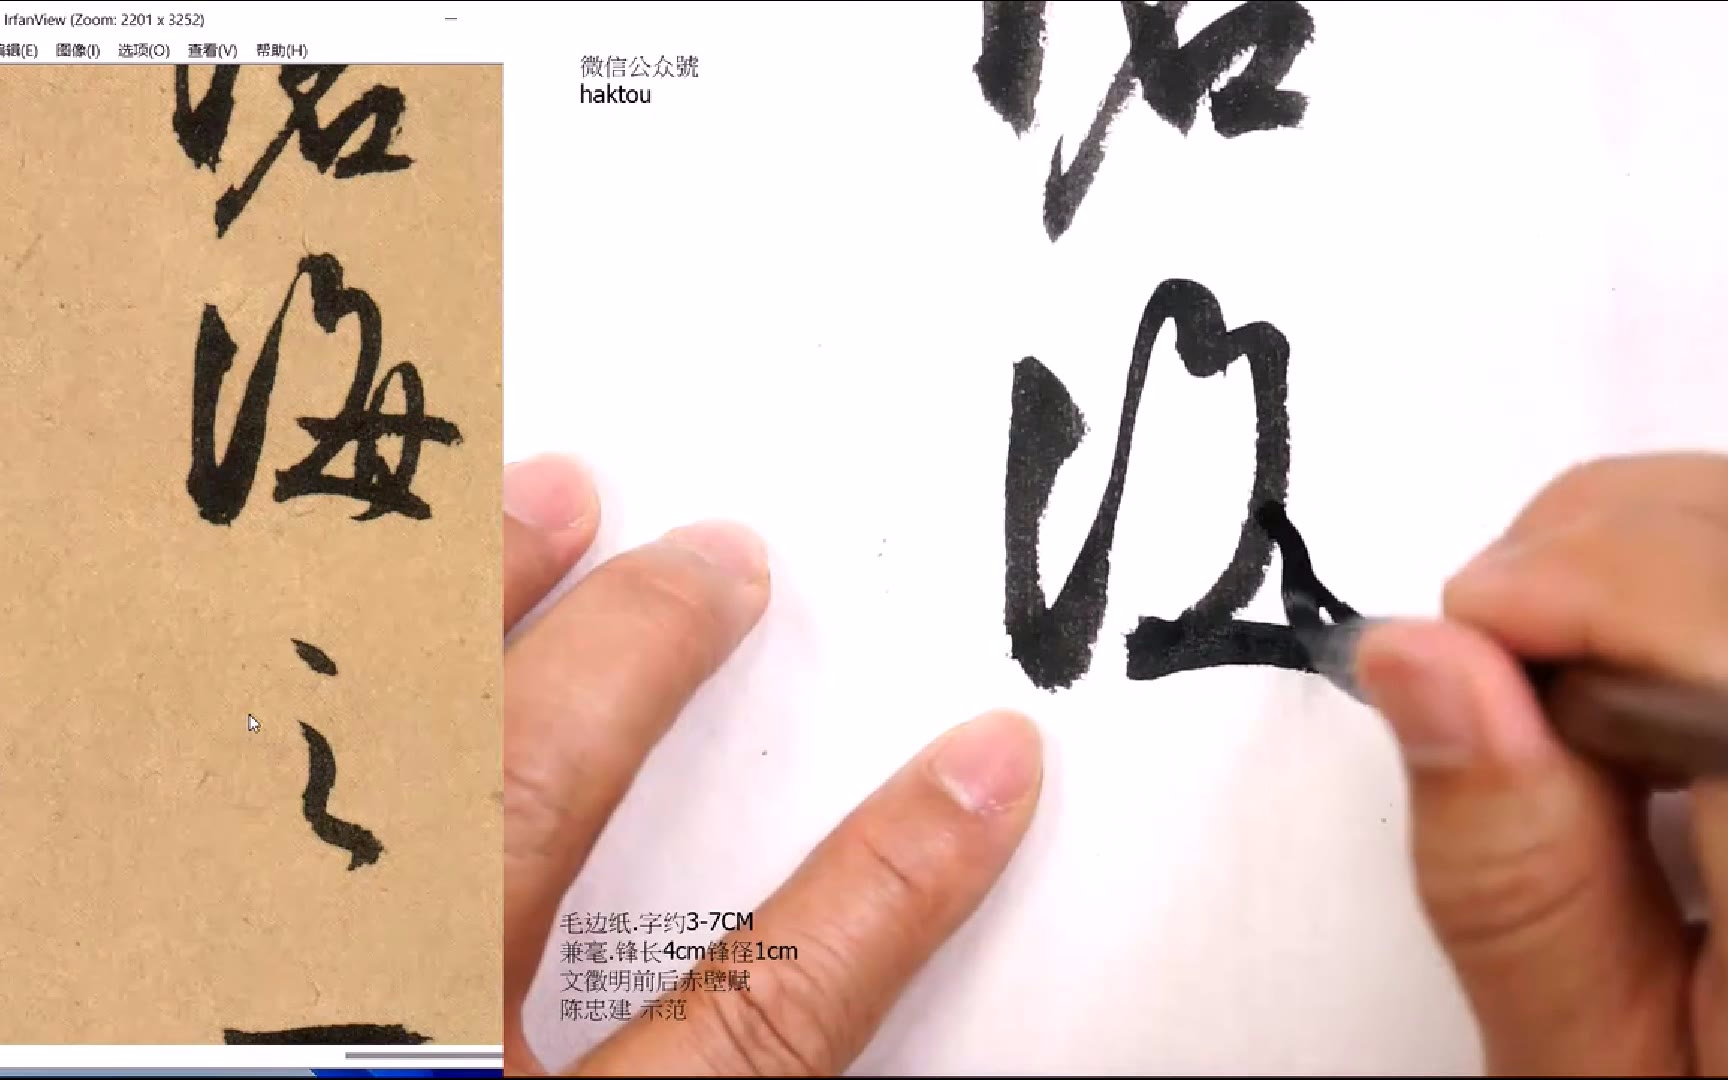 IrfanView (Zoom: 2201 x 3252)
编辑(E) 图像(I) 选项(O) 查看(V) 帮助(H)
沧
海
之
一
微信公众號
haktou
毛边纸.字约3-7CM
兼毫.锋长4cm锋径1cm
文徵明前后赤壁赋
陈忠建 示范